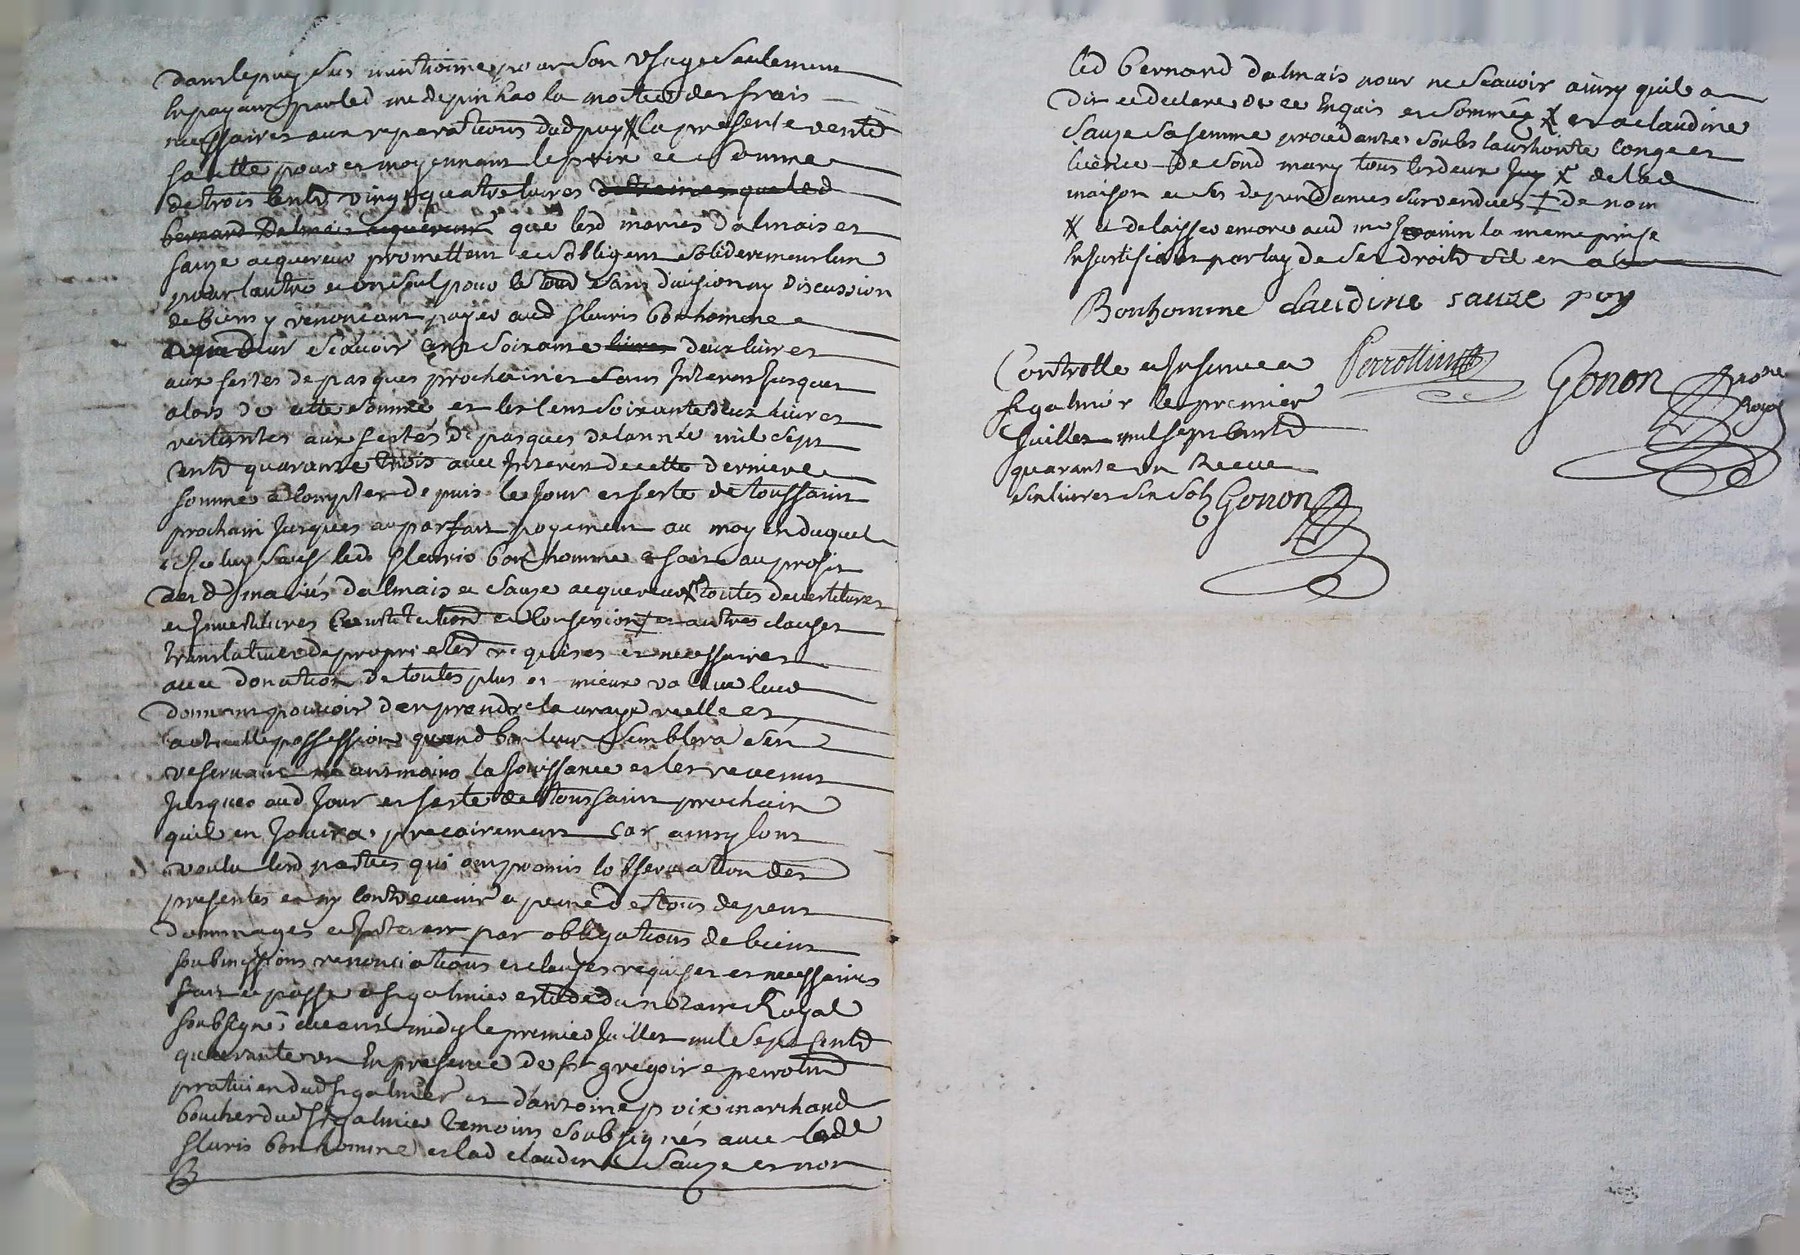 dans le puy sus mentionné pour son usage seulement
en payant par led me depinhac la moitié des frais
necessaires aux reparations dud puy X la presente vente
faitte pour et moyennant le prix et somme
de trois cents vingt quatre livres
bernard Dalmais acquereur que lesd mariés dalmais et
sauze acquereur promettent et sobligent soliderement lun
pour lautre et un seul pour le tout sans division ny discussion
de biens y renoncant payer aud fleuris bonhomme
scavoir cent soixante livres deux livres
aux festes de pasques prochaines sans Interest Jusques
alors de cette somme et les cent soixante deux livres
restantes aux festes de pasques de lannée mil sept
cents quarante trois avec Interest de cette derniere
somme a compter depuis le Jour et feste de toussaint
prochain Jusques au parfait payement au moyen duquel
led fleuris bonhomme a fait au profit
desd mariés dalmais et sauze acquereur X toutes devestitures
et Investitures Constitution et et autres clauses
translatives de proprietes requises et necessaires
avec donation de toutes plus et mieux value leurs
donnant pouvoir den prendre la vraye reelle et
actuelle possession quand bon leur semblera sen
reservant neantmoins la Jouissance et les revenus
Jusques aud Jour et feste de toussaint prochain
quil en Jouira precairement car ainsy lont
voulu lesd parties qui ont promis lobservation des
presentes et ny contrevenir a peine de tous depens
dommages et Interest par obligations de biens
soubmissions renonciations et clauses requises et necessaires
fait et passé a st galmier estude du notaire Royal
soubsigné avant midy le premier Juillet mil sept cents
quarante un En presence de sr gregoire perrotin
praticien dud st galmier et dantoine marchand
boucher dud st galmier temoins soubsignés avec led
fleuris bonhomme et lad claudine Sauze et non
led bernard dalmais pour ne scavoir ainsy quil a
dit et declaré de ce Enquis et sommé X et a claudine
Sauze sa femme procedante soubs lauthorité congé et
licence de sond mary tous les deux X de lad
maison et ses dependances survendues ‡ de nom
X et delaisse encore aud me la meme prise
par luy de ses droits sil en a
Bonhomme claudine sauze roy
Perrottin
Gonon
no.re
Royal
Controllé et Insinué a
st galmier le premier
Juillet mil sept cents
quarante un Receu
six livres six sols Gonon